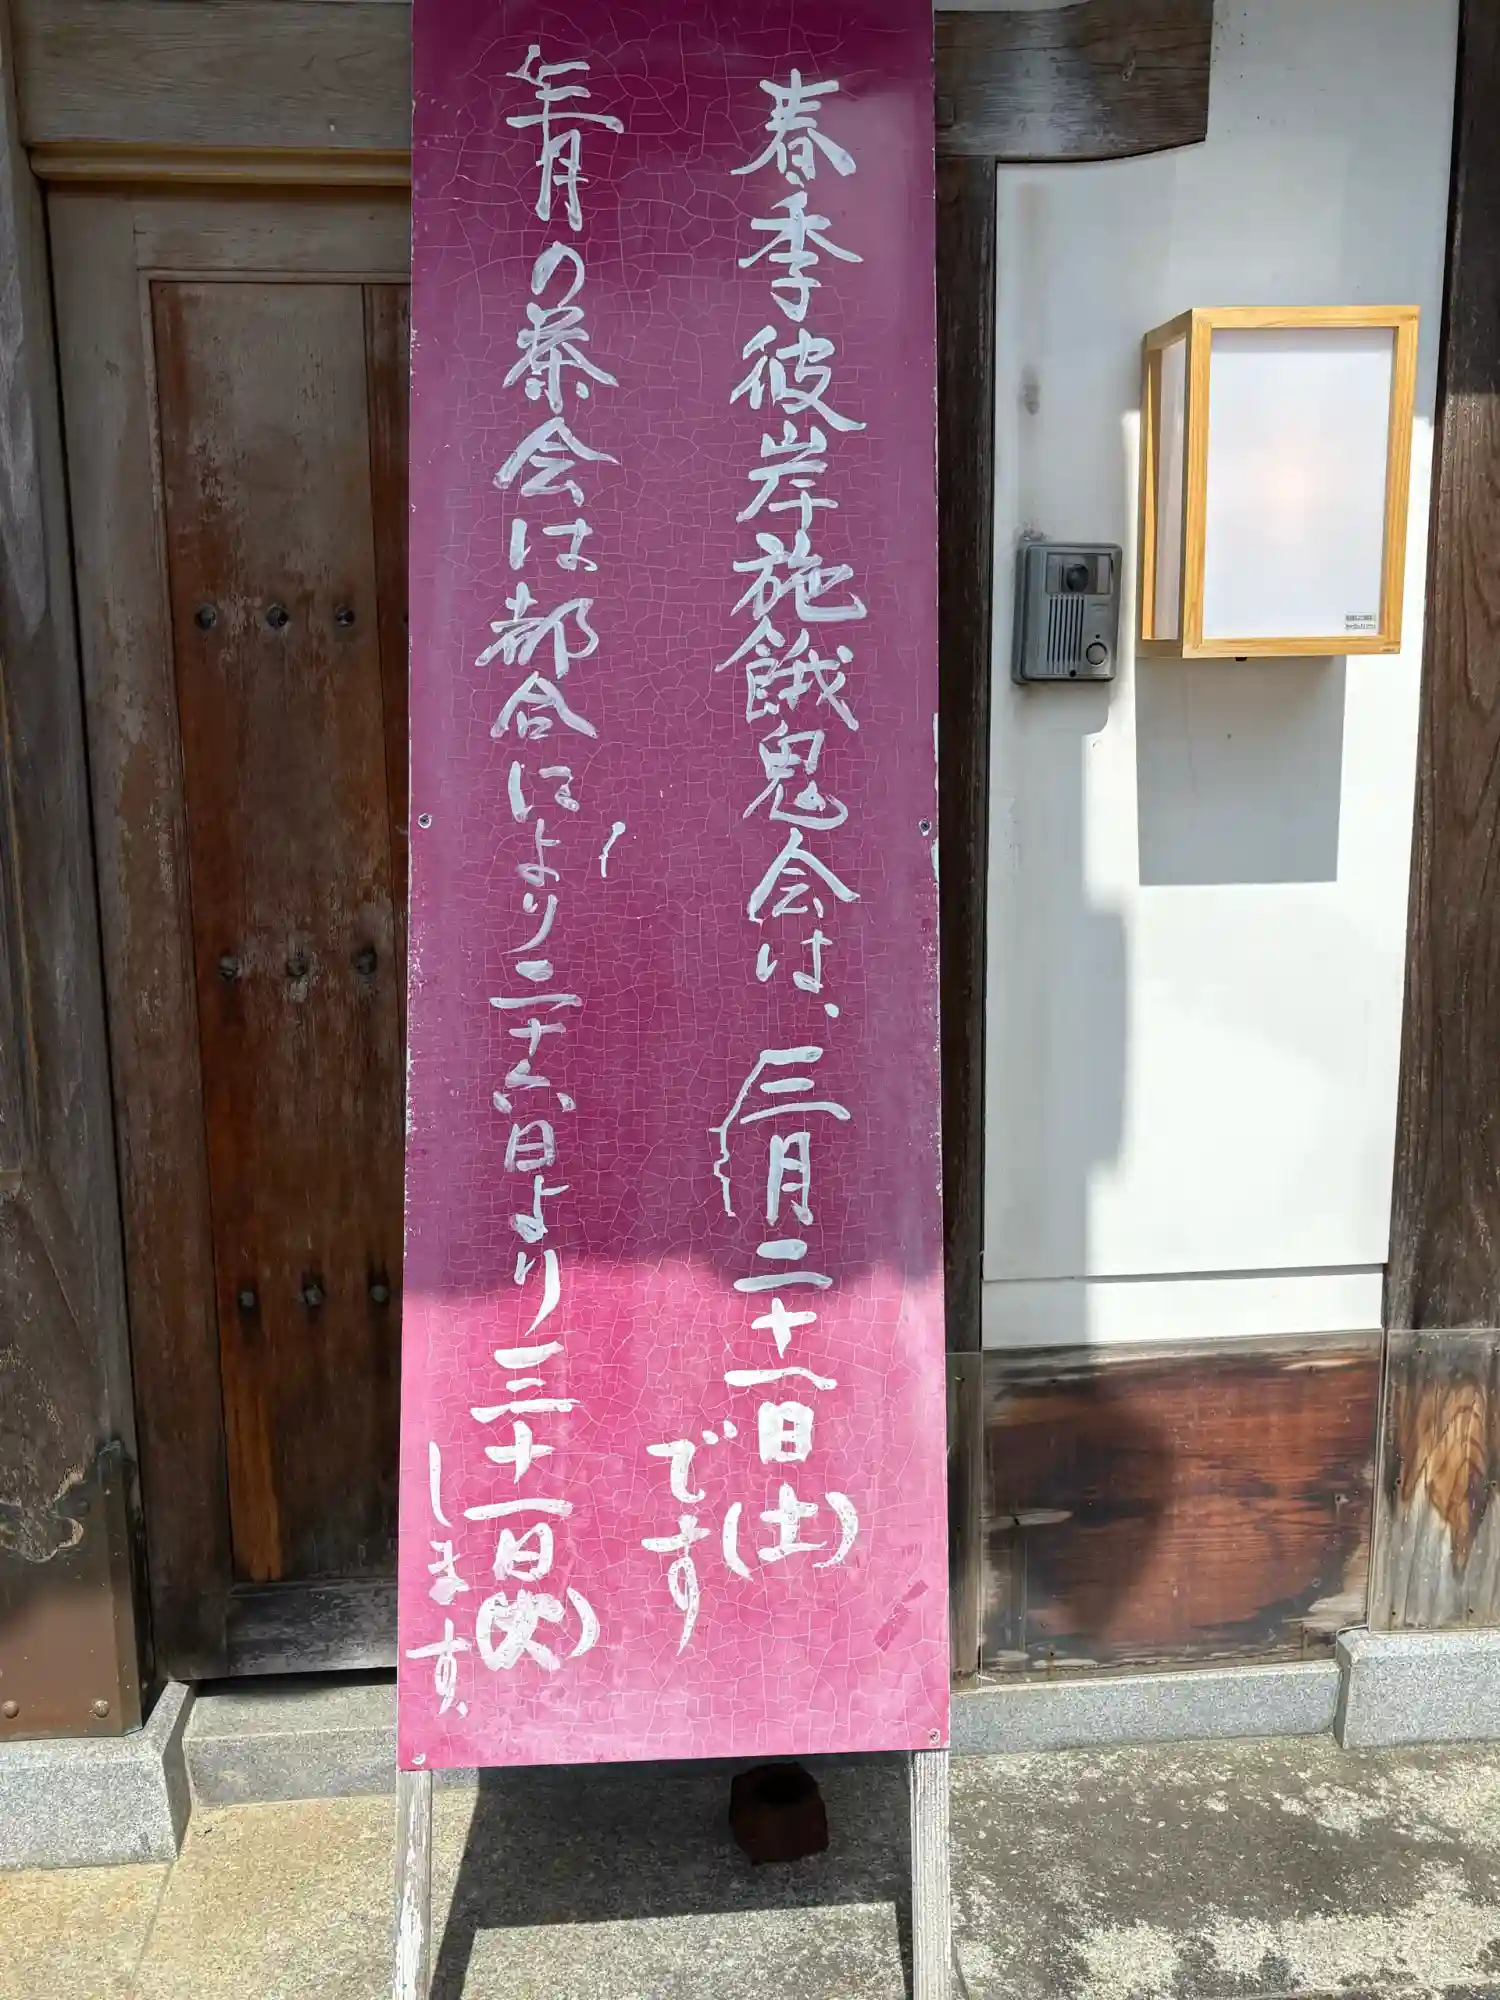 春季彼岸施餓鬼会は、三月二十一日(土)
です
三月の茶会は都合により二十六日より三十一日(火)
します。